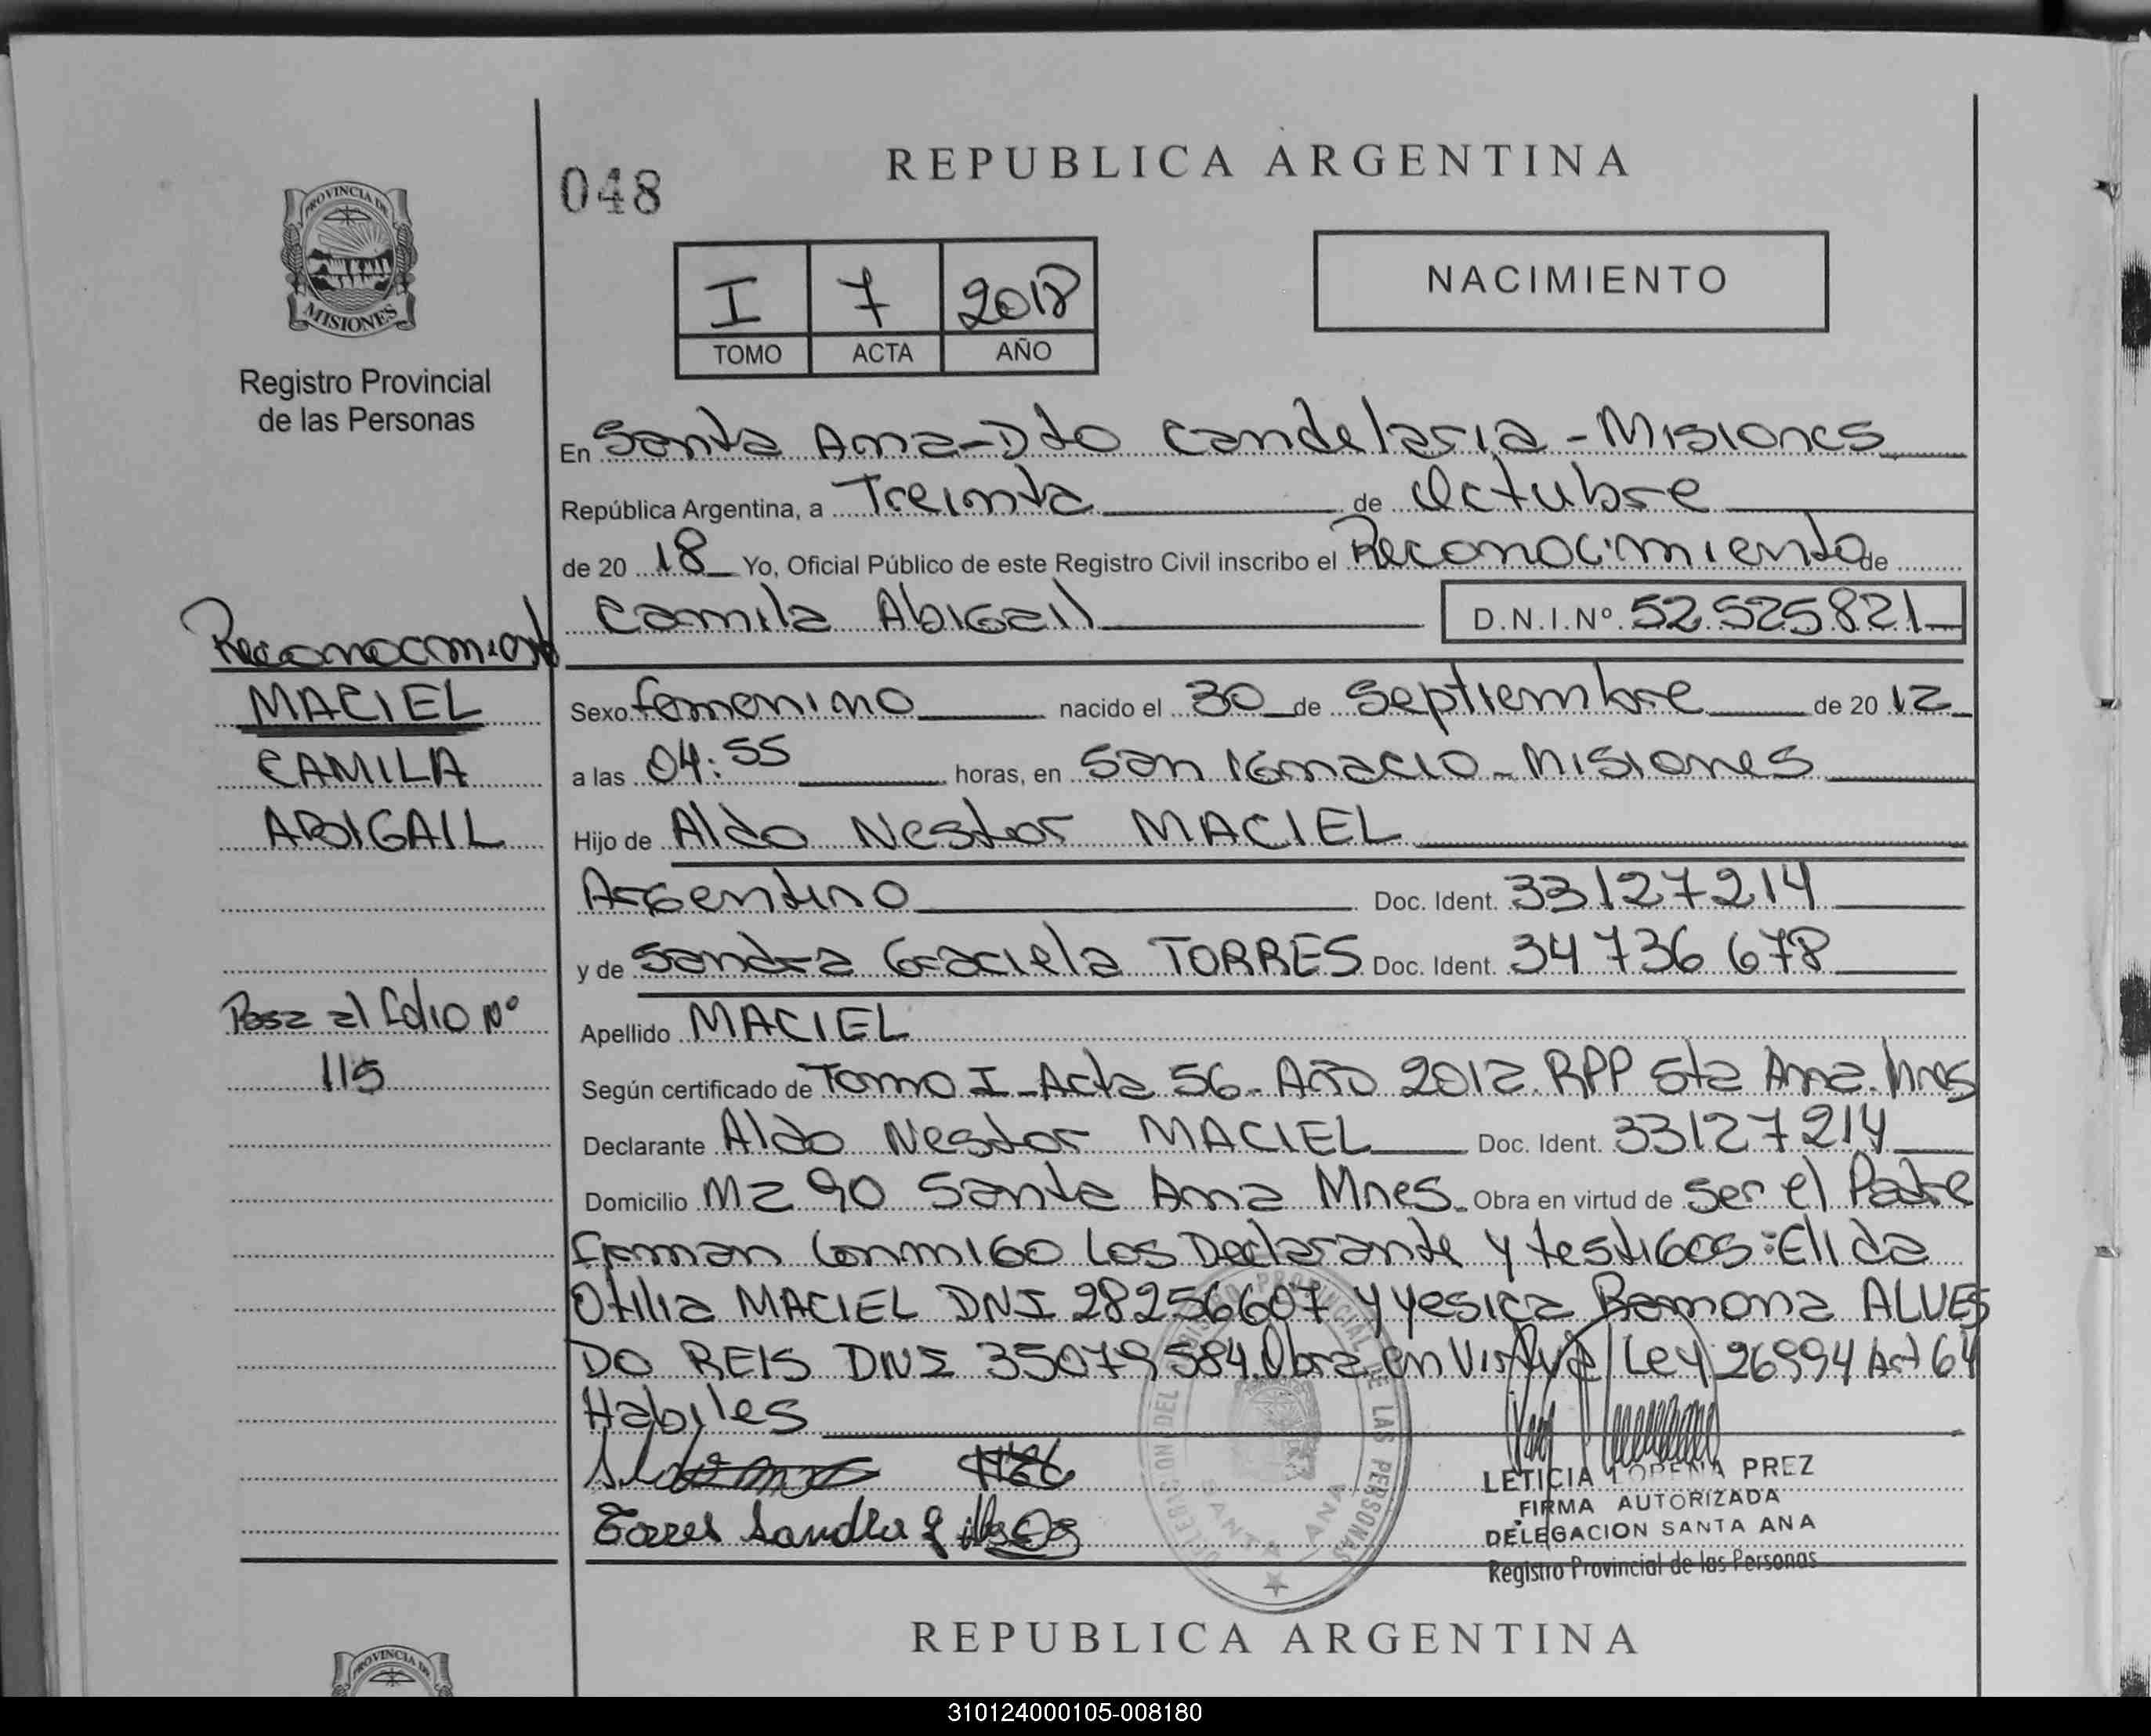 REPUBLICA ARGENTINA
048
PROVINCIA DE
MISIONES
Registro Provincial
de las Personas
I 7 2018
TOMO ACTA AÑO
NACIMIENTO
En Santa Ana - Dto Candelaria - Misiones
República Argentina, a Treinta de Octubre
de 20 18 Yo, Oficial Público de este Registro Civil inscribo el Reconocimiento de
Camila Abigail D.N.I.Nº 52.525821
Sexo femenino nacido el 30 de Septiembre de 20 12
a las 04:55 horas, en San Ignacio - Misiones
Hijo de Aldo Nestor MACIEL
Argentino Doc. Ident. 33127214
y de Sandra Graciela TORRES Doc. Ident. 34 736 678
Apellido MACIEL
Según certificado de Tomo I - Acta 56 - Año 2012. RPP Sta Ana. Mnes
Declarante Aldo Nestor MACIEL Doc. Ident. 33127214
Domicilio Mz 90 Santa Ana Mnes. Obra en virtud de Ser el Padre
firman Conmigo Los Declarante y testigos: Elida
Otilia MACIEL DNI 28256607 y yesica Ramona ALVES
DO REIS DNI 35079584. Obra en Virtud Ley 26994 Art 64
Habiles
Torres Sandra g
LETICIA LORENA PREZ
FIRMA AUTORIZADA
DELEGACION SANTA ANA
Registro Provincial de las Personas
PROVINCIAL DE LAS PERSONAS
SANTA ANA
Reconocmient
MACIEL
CAMILA
ABIGAIL
Pasa al folio Nº
115
REPUBLICA ARGENTINA
PROVINCIA DE
310124000105-008180